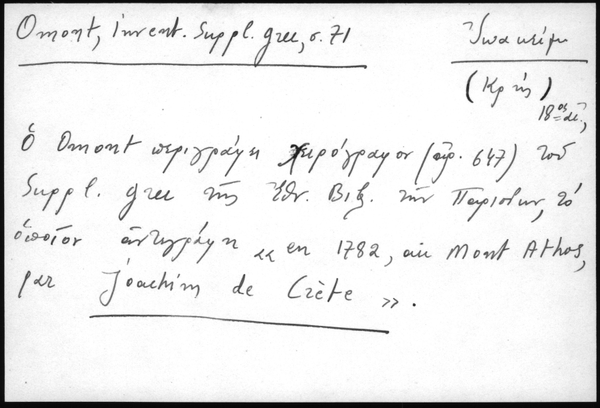 Omont, invent. Suppl. grec, σ. 71
Ἰωακείμ
(Κρής)
18ος αἰ.
Ὁ Omont περιγράφει χειρόγραφον (ἀρ. 647) τοῦ
Suppl. grec τῆς Ἐθν. Βιβ. τῶν Παρισίων, τὸ
ὁποῖον ἀντεγράφη «en 1782, au Mont Athos,
par Joachim de Crète».